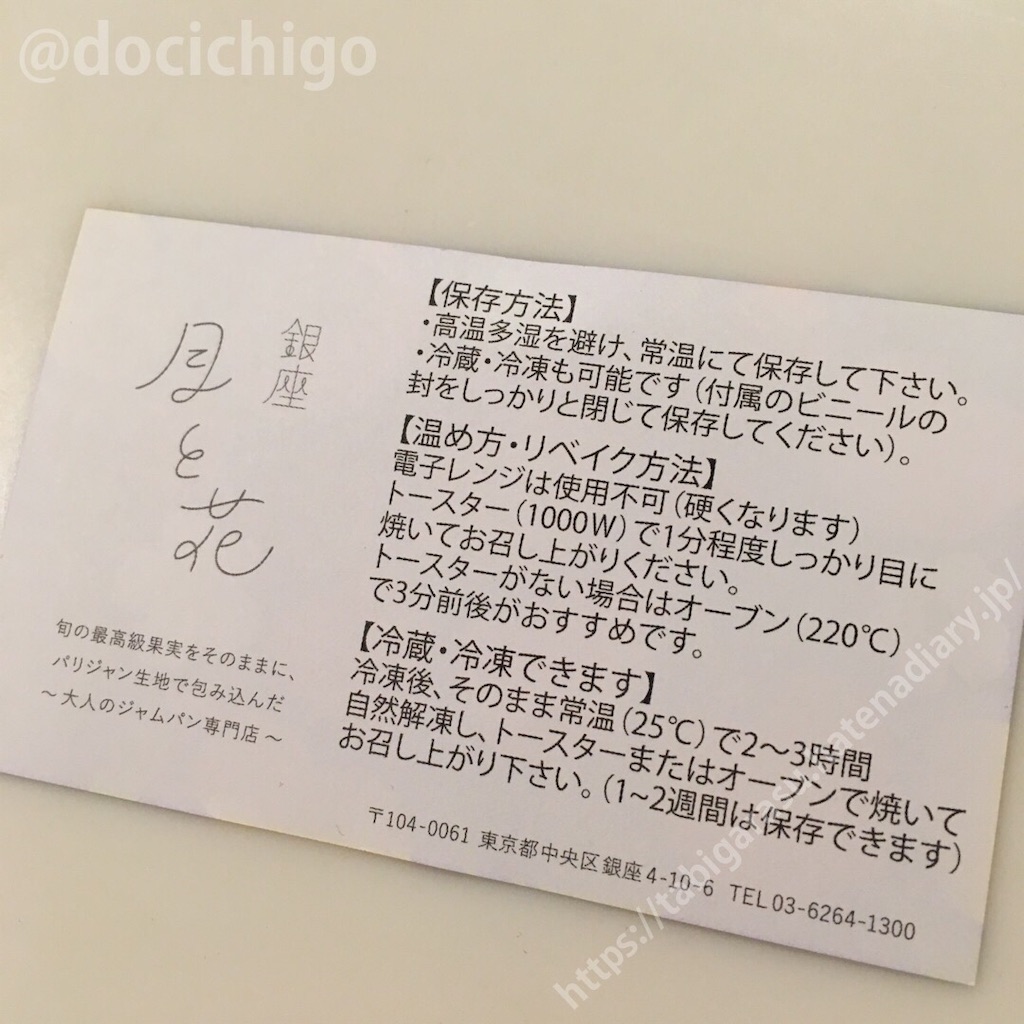 @docichigo
銀座
月と花
旬の最高級果実をそのままに、
パリジャン生地で包み込んだ
～大人のジャムパン専門店～
【保存方法】
・高温多湿を避け、常温にて保存して下さい。
・冷蔵・冷凍も可能です(付属のビニールの
封をしっかりと閉じて保存してください)。
【温め方・リベイク方法】
電子レンジは使用不可(硬くなります)
トースター(1000W)で1分程度しっかり目に
焼いてお召し上がりください。
トースターがない場合はオーブン(220℃)
で3分前後がおすすめです。
【冷蔵・冷凍できます】
冷凍後、そのまま常温(25℃)で2～3時間
自然解凍し、トースターまたはオーブンで焼いて
お召し上がり下さい。(1~2週間は保存できます)
〒104-0061 東京都中央区銀座4-10-6 TEL 03-6264-1300